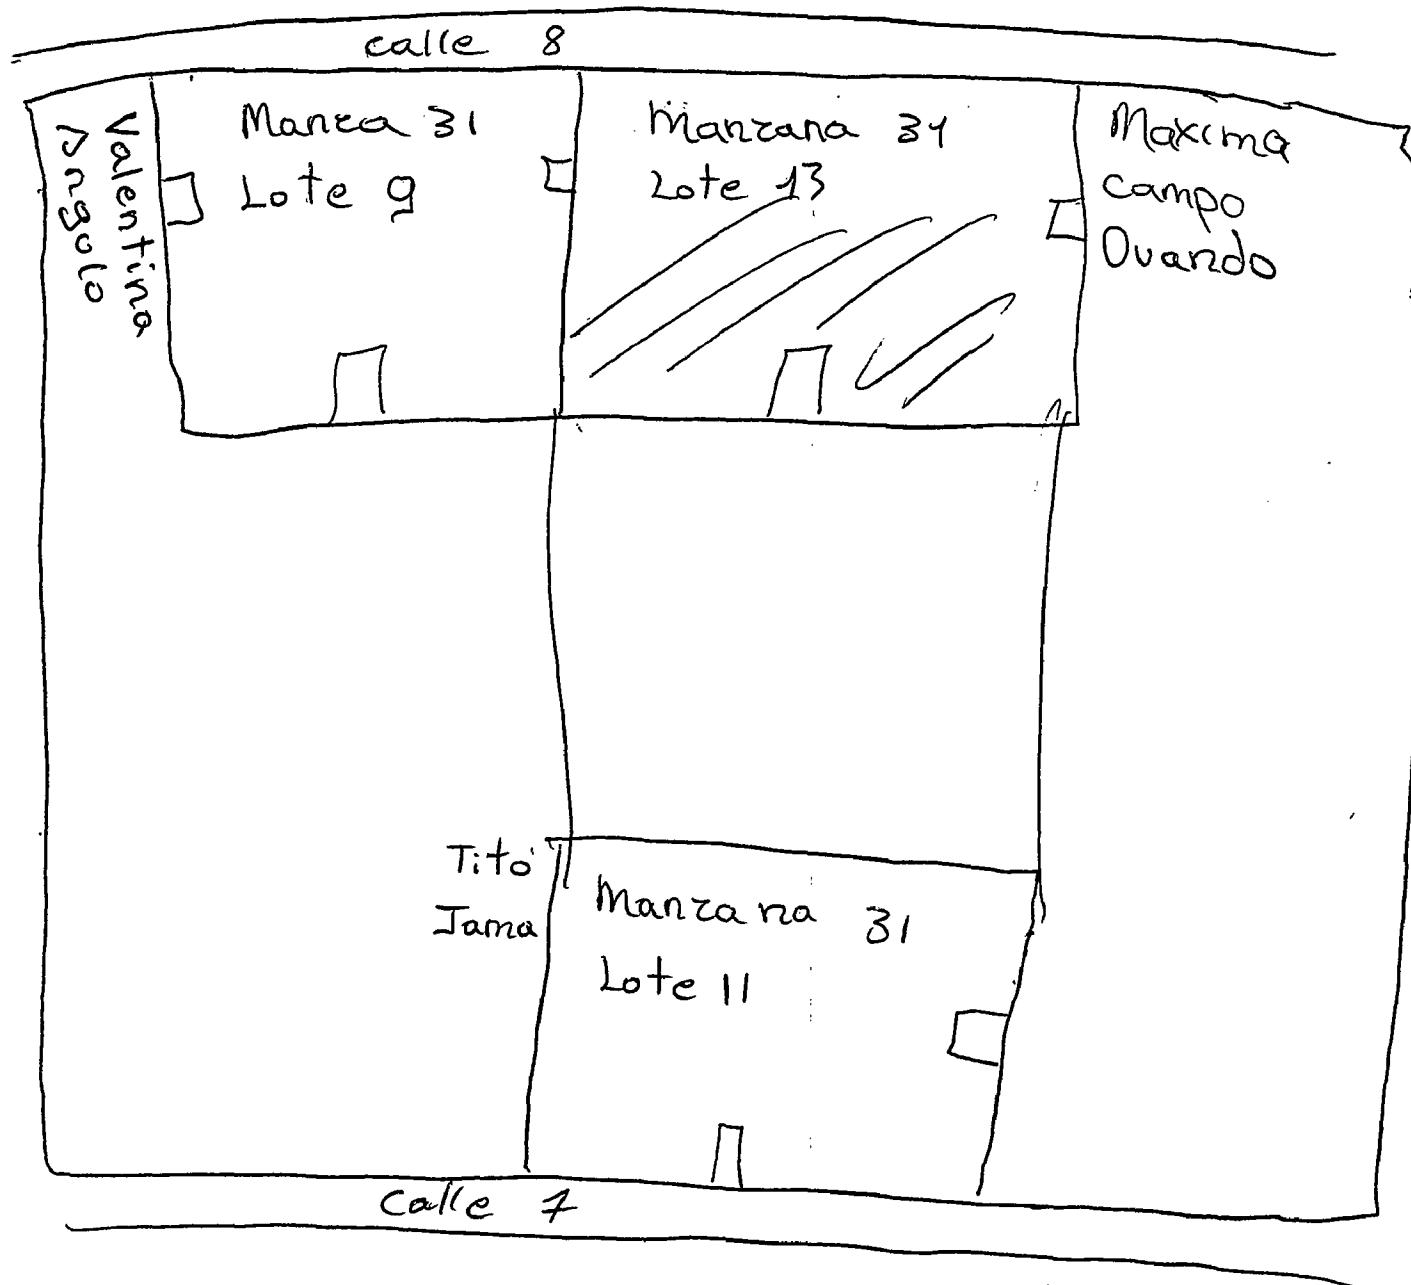 calle 8
Valentina
Angulo
Manza 31
Lote 9
Manzana 31
Lote 13
Maxima
Campo
Ovando
Tito
Jama
Manzana 31
Lote 11
Calle 7